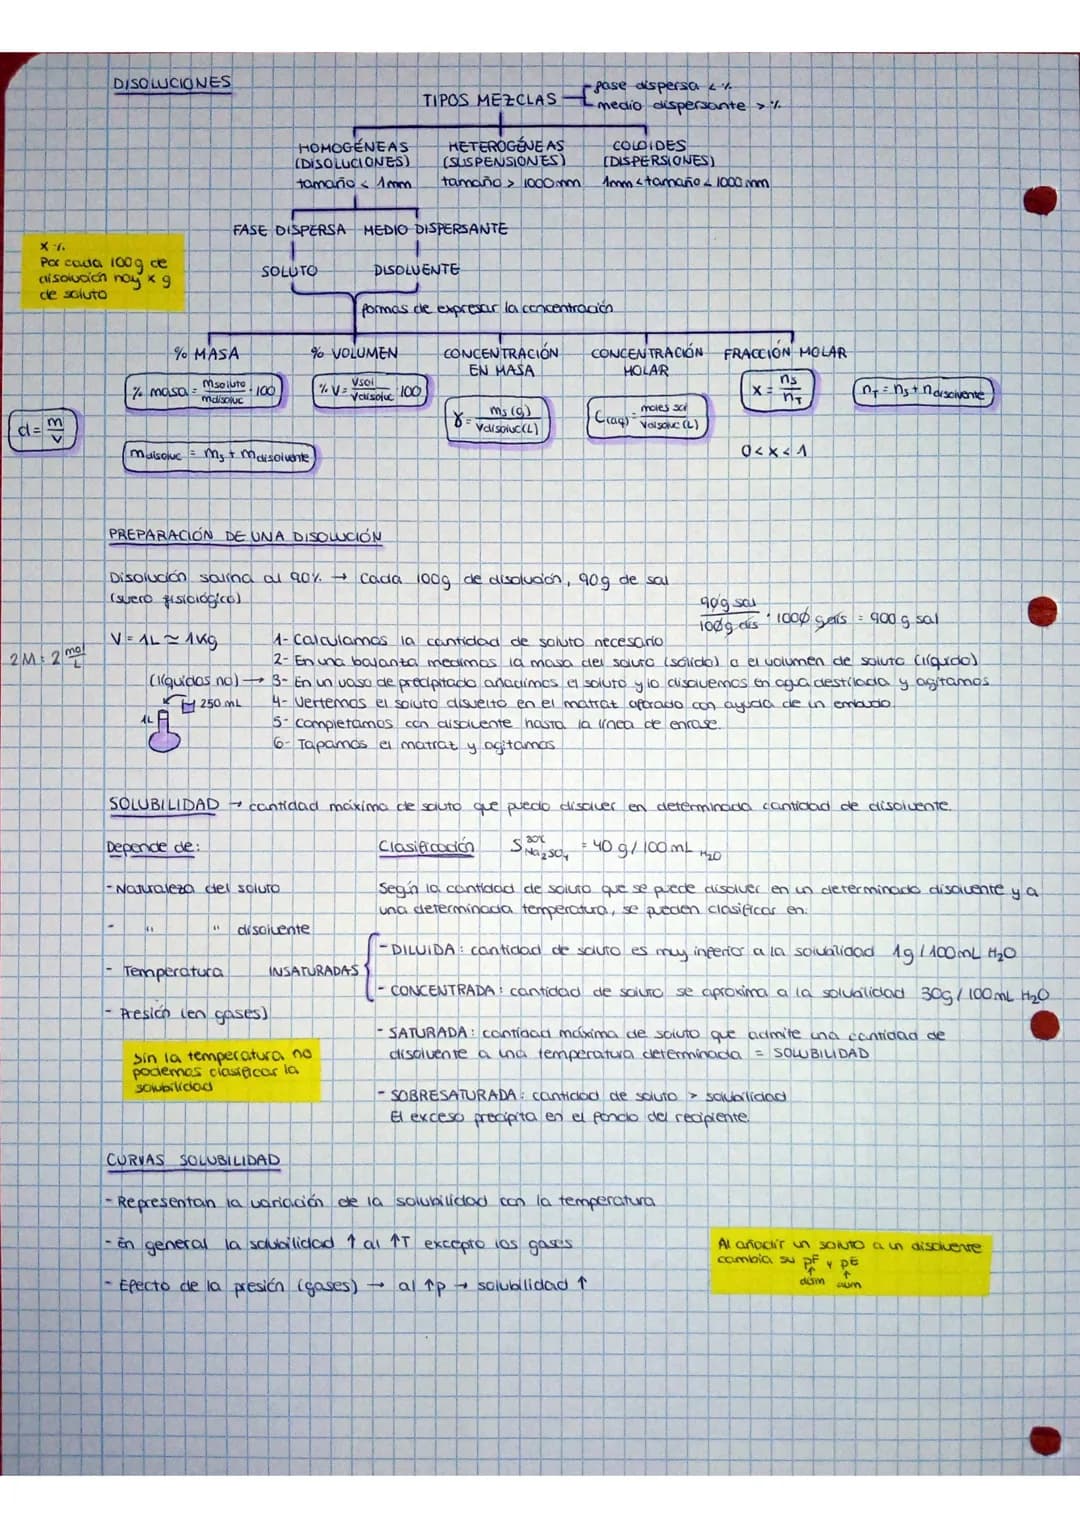 DISOLUCIONES
TIPOS MEZCLAS
fase dispersa < %
medio dispersante > %
HOMOGÉNEAS (DISOLUCIONES) tamaño < 1mm
HETEROGÉNEAS (SUSPENSIONES) tamaño > 1000mm
COLOIDES (DISPERSIONES) 1mm < tamaño < 1000mm
FASE DISPERSA MEDIO DISPERSANTE
x %.
Por cada 100g de
disolución hay x g
de soluto
SOLUTO DISOLVENTE
formas de expresar la concentración
% MASA
% masa = msoluto / mdisoluc · 100
mdisoluc = ms + mdisolvente
% VOLUMEN
% V = Vsol / Vdisoluc · 100
CONCENTRACIÓN
EN MASA
γ = ms (g) / Vdisoluc (L)
CONCENTRACIÓN
MOLAR
C(aq) = moles sol / Vdisoluc (L)
FRACCIÓN MOLAR
X = ns / nT
0 < x < 1
nT = ns + ndisolvente
d = m / V
PREPARACIÓN DE UNA DISOLUCIÓN
Disolución salina al 90% → Cada 100g de disolución, 90g de sal
(suero fisiológico)
90g sal / 100g dis · 1000 g dis = 900 g sal
V = 1L ≃ 1Kg
2M: 2 mol / L
1- Calculamos la cantidad de soluto necesario
2- En una balanza medimos la masa del soluto (sólido) o el volumen de soluto (líquido)
(líquidos no) → 3- En un vaso de precipitado añadimos el soluto y lo disolvemos en agua destilada y agitamos
250 mL
1L
4- Vertemos el soluto disuelto en el matraz aforado con ayuda de un embudo.
5- Completamos con disolvente hasta la línea de enrase.
6- Tapamos el matraz y agitamos
SOLUBILIDAD → cantidad máxima de soluto que puedo disolver en determinada cantidad de disolvente.
Depende de:
- Naturaleza del soluto
- " " disolvente
- Temperatura
- Presión (en gases)
Sin la temperatura no
podemos clasificar la
solubilidad
Clasificación S Na2SO4 = 40 g / 100 mL H2O
Según la cantidad de soluto que se puede disolver en un determinado disolvente y a
una determinada temperatura, se pueden clasificar en:
INSATURADAS
- DILUIDA: cantidad de soluto es muy inferior a la solubilidad 1g / 100mL H2O
- CONCENTRADA: cantidad de soluto se aproxima a la solubilidad 30g / 100mL H2O
- SATURADA: cantidad máxima de soluto que admite una cantidad de
disolvente a una temperatura determinada = SOLUBILIDAD
- SOBRESATURADA: cantidad de soluto > solubilidad
El exceso precipita en el fondo del recipiente.
CURVAS SOLUBILIDAD
- Representan la variación de la solubilidad con la temperatura
- En general la solubilidad ↑ al ↑T excepto los gases
- Efecto de la presión (gases) → al ↑p → solubilidad ↑
Al añadir un soluto a un disolvente
cambia su pF y pE
↑ ↑
dism aum